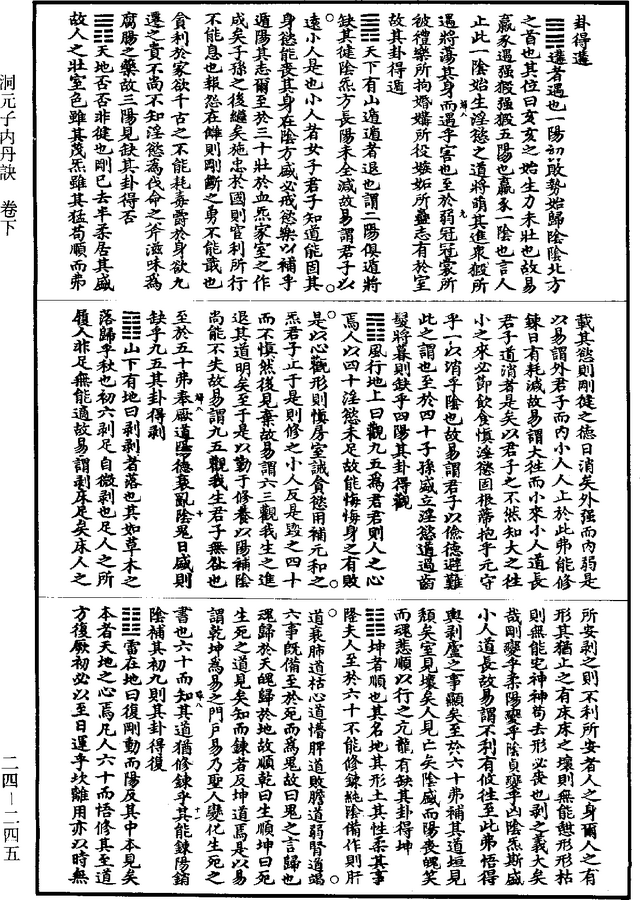 洞元子内丹訣 卷下
二四—二四五
卦得遘
䷫遘者遇也一陽初敗勢始歸陰陰北方
之首也其位曰亥亥之始生力未壯也故易
羸豕遇强猳强猳五陽也羸豕一陰也言人
止此一陰始生淫慾之道將萌其進衆猳所
遇將蕩其身而遇乎害也至於弱冠冠蒙所
彼禮樂所拘婚媾所役嫉妬所蠱志有於室
故其卦得遁
䷠天下有山遁遁者退也謂二陽俱遁將
缺其健陰炁方長陽未全減故易謂君子以
遠小人是也小人者女子君子知道能固其
身慾能喪其身在陰方盛必戒慾樂以補乎
遁陽其志爾至於三十壯於血炁家室之作
成矣子孫之後繼矣施忠於國則官利所行
不能息也報怨在讎則剛斷之勇不能戢也
貪利於家欲千古之不能耗毒爵於身欲九
遷之貴不高不知淫慾爲伐命之斧滋味爲
腐腸之藥故三陽見缺其卦得否
䷋天地否否非健也剛已去半柔居其盛
故人之壯室色雖其茂炁雖其猛苟順而弗
載其慾則剛健之德日消矣外强而内弱是
以易謂外君子而内小人人上於此弗能修
錬日有耗減故易謂大徃而小來小人道長
君子道消者是矣以君子之不然知大之徃
小之來必節飲食愼淫慾固根蒂抱乎元守
乎一以消乎陰也故易謂君子以儉德避難
此之謂也至於四十子孫盛立淫慾道過齒
髮將暮則缺乎四陽其卦得觀
䷓風行地上曰觀九五爲君君則人之心
焉人以四十淫慾未足故能悔悔身之有敗
是以心觀形則愼房室誡貪慾用補元和之
炁君子正于是則修之小人反是毁之四十
而不愼然後見棄故易謂六三觀我生之進
退其道明矣至于是以勤于修養以陽補陰
尚能不失故易謂九五觀我生君子無咎也
至於五十弗奉厥道陽德衰亂陰鬼日盛則
缺乎九五其卦得剥
䷖山下有地曰剥剥者落也其如草木之
落歸乎秋也初六剥足自微剥也足人之所
履人非足無能適故易謂剥床足矣床人之
所安剥之則不利所安者人之身爾人之有
形其猶止之有床床之壞則無能憩形形枯
則無能宅神神苟去形必喪也剥之義大矣
哉剛變乎柔陽變乎陰貞變乎凶陰炁斯盛
小人道長故易謂不利有攸徃至此弗悟得
輿剥廬之事顯矣至於六十弗補其道垣見
頹矣室見壞矣人見亡矣陰盛而陽喪魄笑
而魂悲順以行之亢龍有缺其卦得坤
䷁坤者順也其名地其形土其性柔其事
隆夫人至於六十不能修錬純陰備作則肝
道衰肺道枯心道憎脾道敗膽道弱腎道竭
六事旣備至於死而爲鬼故曰鬼之言歸也
魂歸於天魄歸於地故順乾曰生順坤曰死
生死之道見矣知而錬者反坤道焉是以易
謂乾坤爲易之門戶易乃聖人變化生死之
書也六十而知其道猶修錬乎其能錬陽銷
陰補其初九則其卦得復
䷗雷在地曰復剛動而陽反其中本見矣
本者天地之心焉足人六十而悟修其至道
方復厥初必以至日運乎坎離用亦以時無